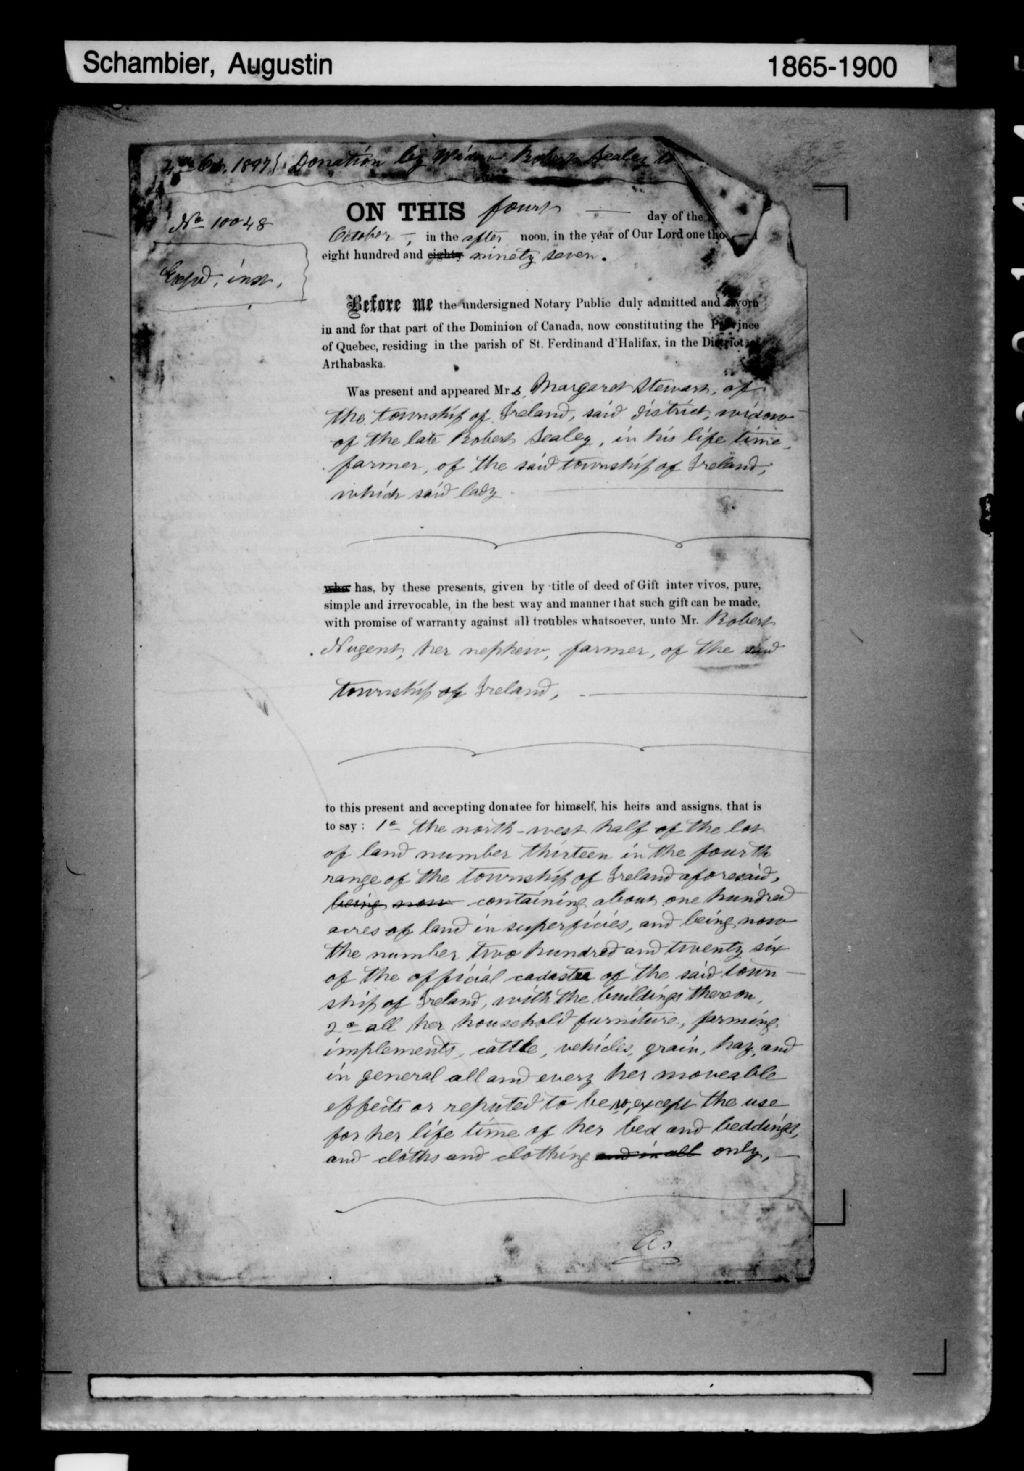 Schambier, Augustin 1865-1900
Oct. 1897 Donation by Widow Robert Sealey to
No 10048
ON THIS fourth — day of the
October —, in the after noon, in the year of Our Lord one
eight hundred and eighty ninety seven.
Before me the undersigned Notary Public duly admitted and sworn
in and for that part of the Dominion of Canada, now constituting the Province
of Quebec, residing in the parish of St. Ferdinand d'Halifax, in the District of
Arthabaska.
Was present and appeared Mrs. Margaret Stewart, of
the township of Ireland, said district, widow
of the late Robert Sealey, in his life time,
farmer, of the said township of Ireland,
which said lady
who has, by these presents, given by title of deed of Gift inter vivos, pure,
simple and irrevocable, in the best way and manner that such gift can be made,
with promise of warranty against all troubles whatsoever, unto Mr. Robert
Nugent, her nephew, farmer, of the said
township of Ireland, —
to this present and accepting donatee for himself, his heirs and assigns, that is
to say : 1o the north-west half of the lot
of land number thirteen in the fourth
range of the township of Ireland aforesaid,
being now containing about one hundred
acres of land in superficies, and being now
the number two hundred and twenty six
of the official cadastre of the said town-
ship of Ireland, with the buildings thereon,
2o all her household furniture, farming
implements, cattle, vehicles, grain, hay, and
in general all and every her moveable
effects or reputed to be so, except the use
for her life time of her bed and beddings,
and cloths and clothing and in all only, —